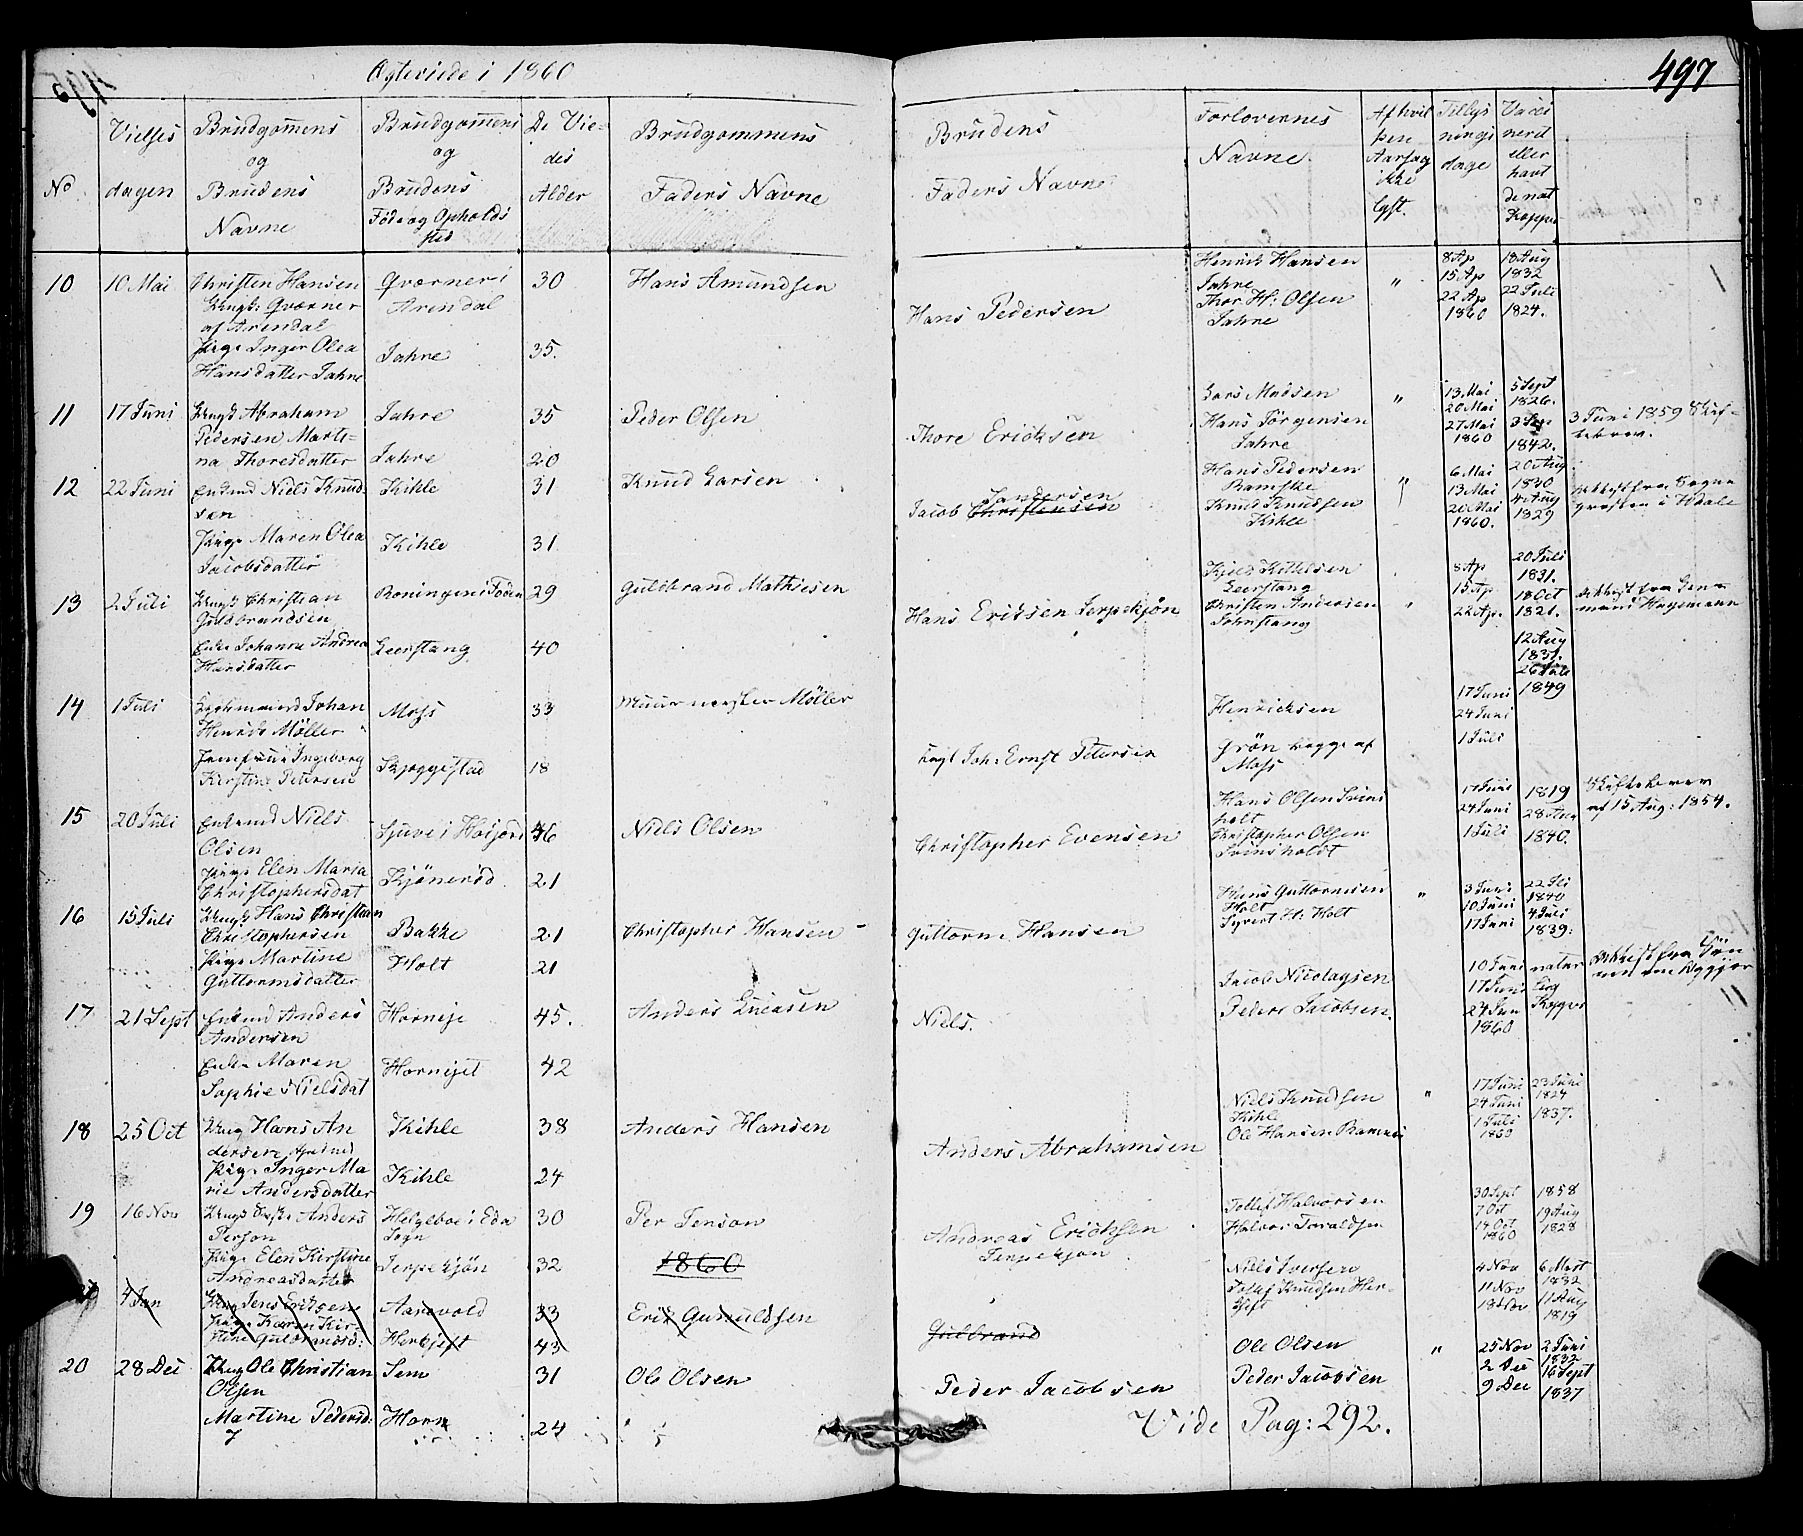 Ægteviede i 1860
497
No
Vielses
dagen
Brudgomens
og
Brudens
Navne
Brudgomens
og
Brudens
Føde og Opholds
sted
De Vie-
des
Alder
Brudgommens
Faders Navne
Brudens
Faders Navne
Forlovernes
Navne
Tillys
nings
dage
Vacci
nerit
eller
havt
de nat
Kopper
10
10 Mai
Christen Hansen
Ungk: Qværner
af Arendal
Pige Inger Olea
Hansdatter Jahre
Qværner i
Arendal
Jahre
30
35.
Hans Amundsen
Hans Pedersen
Henrik Hansen
Jahre
Thor H: Olsen
Jahre
"
8 Ap
15 Ap
22 Ap
1860
18 Aug
1832
22 Juli
1824.
11
17 Juni
Ungk Abraham
Pedersen Marti-
na Thoresdatter
Jahre
Jahre
35
20
Peder Olsen
Thore Ericksen
Lars Madsen
Hans Jörgensen
Jahre
"
13 Mai
20 Mai
27 Mai
1860
5 Sept
1826.
3 Sep
1842.
3 Juni 1859 Skif-
tebrev.
12
22 Juni
Enkemd Niels Knud-
sen
Pige Maren Olea
Jacobsdatter
Kihle
Kihle
31
31
Knud Larsen
Jacob Christensen
Hans Pedersen
Ramske
Knud Knudsen
Kihle
"
6 Mai
13 Mai
20 Mai
1860.
20 Aug
1830
4 Aug
1829
13
2 Juli
Ungk Christian
Guldbrandsen
Enke Johanne Andrea
Hansdatter
Leerstang
29
40
Guldbrand Mathiesen
Hans Eriksen Jerpekjøn
Leerstang
Christen Andersen
"
8 Ap
15 Ap
22 Ap.
20 Juli
1831.
18 Oct
1821.
14
1 Juli
Johan
Henrik Möller
Jomfrue Ingeborg
Kirstine Petersen
Moss
Skjeggestad
33
18
Muurmester Möller
Joh: Ernst Petersen
Henricksen
Grön begge af
Moss
17 Juni
24 Juni
1 Juli
12 Aug
1831.
1849
15
20 Juli
Enkemd Niels
Olsen
Pige Elen Maria
Christophersdat
Kjönerød
46
21
Niels Olsen
Christopher Evensen
Hans Olsen Svins
holt
Christopher Olsen
Svinsholdt
17 Juni
24 Juni
1 Juli
1819
1840.
Skiftebrev
af 15 Aug: 1854.
16
15 Juli
Ungk Hans Christian
Christophersen
Pige Martine
Guttormsdatter
Bakke
Holt
21
21
Christopher Hansen
Guttorm Hansen
Hans Guttormsen
Holt
Syvert H: Holt
"
3 Juni
10 Juni
17 Juni
1840
4 Juli
1839:
17
21 Sept
Enkemd Anders
Andersen
Enke Maren
Sophie Nielsdat
45.
42
Anders Lucasen
Niels.
Jacob Nicolaysen
Peder Jacobsen.
10 Juni
17 Juni
24 Jun
1860
18
25 Oct
Ungk Hans An
dersen
Pige Inger Ma
rie Andersdatter
Kihle
Kihle
38
24
Anders Hansen
Anders Abrahamsen
Niels Knudsen
Kihle
Ole Hansen
"
17 Juni
24 Juni
1 Juli
1860
23 Juni
1824
1837.
19
16 Nov
Anders
Person
Pige Elen Kirstine
Andreasdatter
Helgeboe i Eda
Sogn
Jerpekjön
30
32
Per Jenson
Andreas Ericksen
Jerpekjön
Tollef Halvorsen
Halvor Tovaldsen
30 Sept
7 Oct
14 Oct
1860
1858
19 Aug
1828
1860
4 Jan
Ungk Jens Eriksen
Pige Karen Kir-
stine Guldbrandsd:
Aarevold
Herkjøft
33
43
Erik Gunuldsen
Gulbrand
Niels Iversen
Tollef Knudsen Her-
kjøft
4 Nov
11 Nov
18 Nov
6 Mart
1832
11 Aug
1819
20
28 Dec
Ungk Ole Christian
Olsen
Martine Pedersd:
Sem
Horn
31
24
Ole Olsen
Peder Jacobsen
Ole Olsen
Peder Jacobsen
"
25 Nov
2 Dec
9 Dec
2 Juni
1832
16 Sept
1837
Vide Pag: 292.